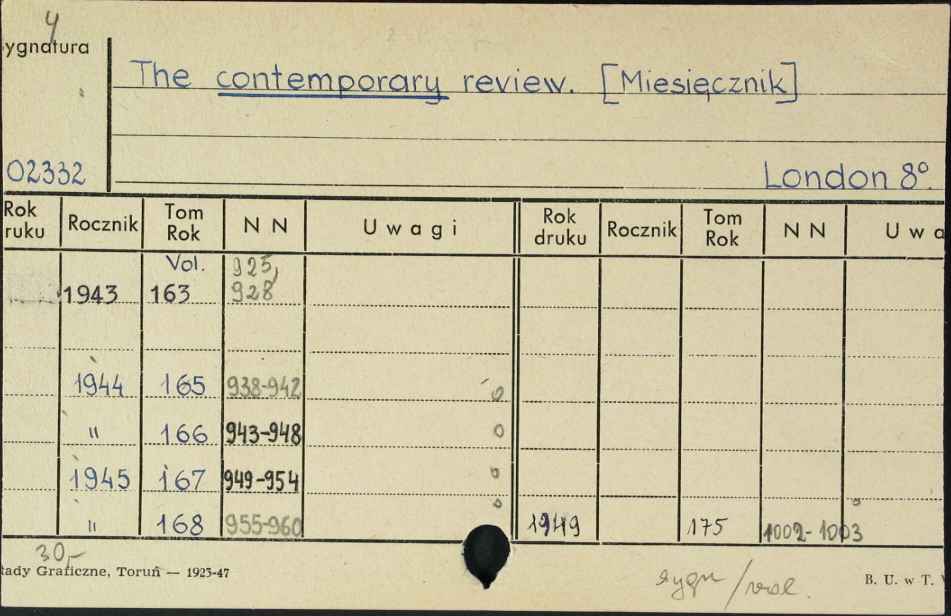 4
ygnatura
The contemporary review. [Miesięcznik]
02332
London 8°.
Rok
ruku
Rocznik
Tom
Rok
N N
Uwagi
Rok
druku
Rocznik
Tom
Rok
N N
Uwa
Vol. 925,
1943 163 928
1944 165 938-942
" 166 943-948
1945 167 949-954
" 168 955-960 1949 175 1002-1003
30,-
łady Graficzne, Toruń — 1925-47
sygn
B. U. w T.